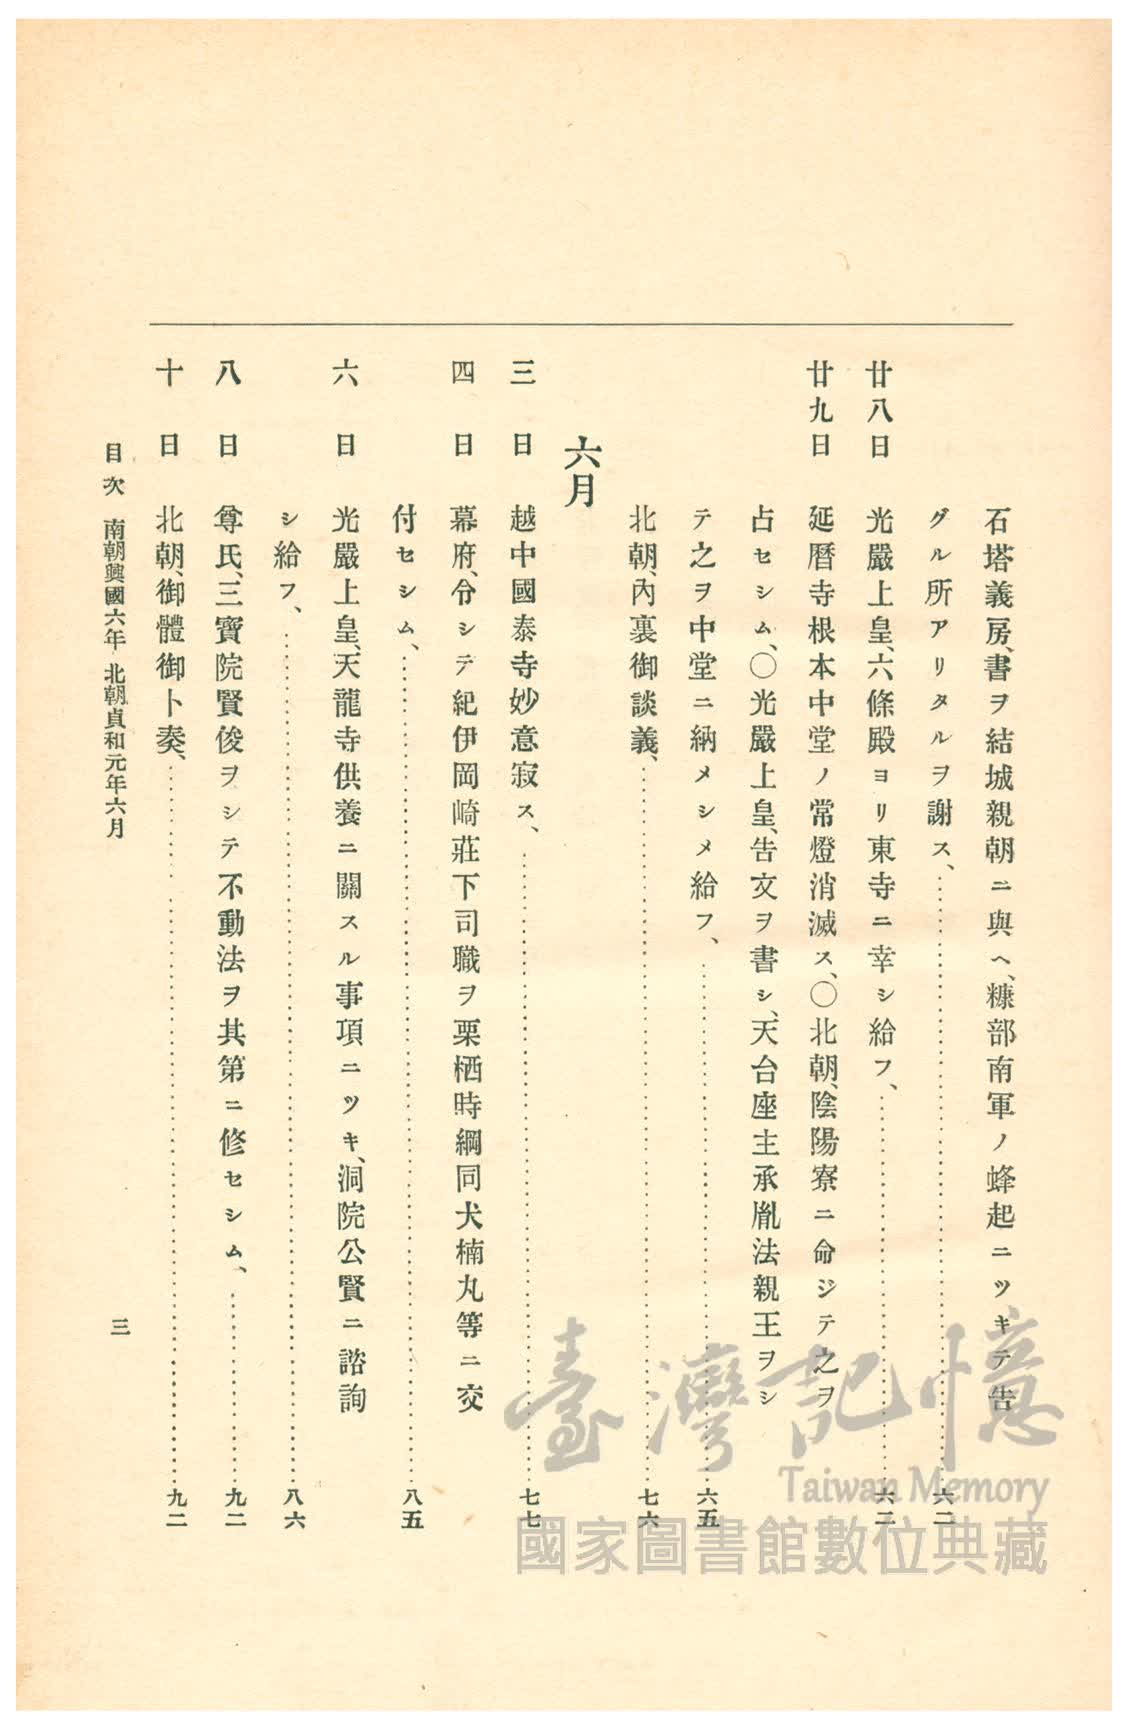 石塔義房、書ヲ結城親朝ニ與ヘ、糠部南軍ノ蜂起ニツキテ告
グル所アリタルヲ謝ス、……六二
廿八日 光嚴上皇、六條殿ヨリ東寺ニ幸シ給フ、……六二
廿九日 延曆寺根本中堂ノ常燈消滅ス、〇北朝、陰陽寮ニ命ジテ之ヲ
占セシム、〇光嚴上皇、告文ヲ書シ、天台座主承胤法親王ヲシ
テ之ヲ中堂ニ納メシメ給フ、……六五
北朝、內裏御談義、……七六
六月
三日 越中國泰寺妙意寂ス、……七七
四日 幕府、令シテ紀伊岡崎莊下司職ヲ栗栖時綱同犬楠丸等ニ交
付セシム、……八五
六日 光嚴上皇、天龍寺供養ニ關スル事項ニツキ、洞院公賢ニ諮詢
シ給フ、……八六
八日 尊氏、三寶院賢俊ヲシテ不動法ヲ其第ニ修セシム、……九二
十日 北朝、御體御卜奏、……九二
目次 南朝興國六年 北朝貞和元年六月 三
臺灣記憶
Taiwan Memory
國家圖書館數位典藏